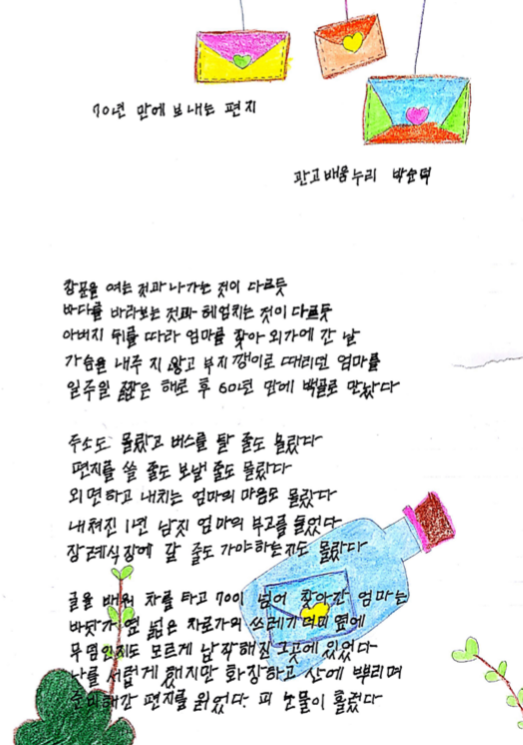 70년 만에 보내는 편지
판고배움누리 박순덕
창문을 여는 것과 나가는 것이 다르듯
바다를 바라보는 것과 헤엄치는 것이 다르듯
아버지 뒤를 따라 엄마를 찾아 외가에 간 날
가슴을 내주지 않고 부지깽이로 때리던 엄마를
일주일 짧은 해로 후 60년 만에 백골로 만났다
주소도 몰랐고 버스를 탈 줄도 몰랐다
편지를 쓸 줄도 보낼 줄도 몰랐다
외면하고 내치는 엄마의 마음도 몰랐다
내쳐진 1년 남짓 엄마의 부고를 들었다
장례식장에 갈 줄도 가야하는지도 몰랐다
글을 배워 차를 타고 70이 넘어 찾아간 엄마는
바닷가 옆 넓은 자로가의 쓰레기더미 옆에
무덤인지도 모르게 납작해진 그곳에 있었다
나를 서럽게 했지만 화장하고 산에 뿌리며
준비해간 편지를 읽었다. 피 눈물이 흘렀다